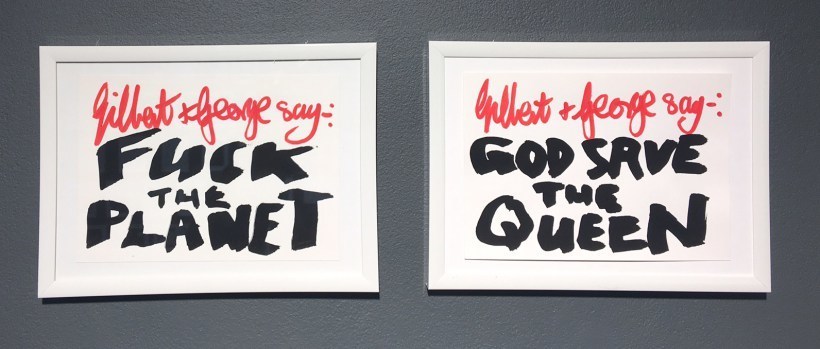 Gilbert + George say-:
FUCK
THE
PLANET
Gilbert + George say-:
GOD SAVE
THE
QUEEN